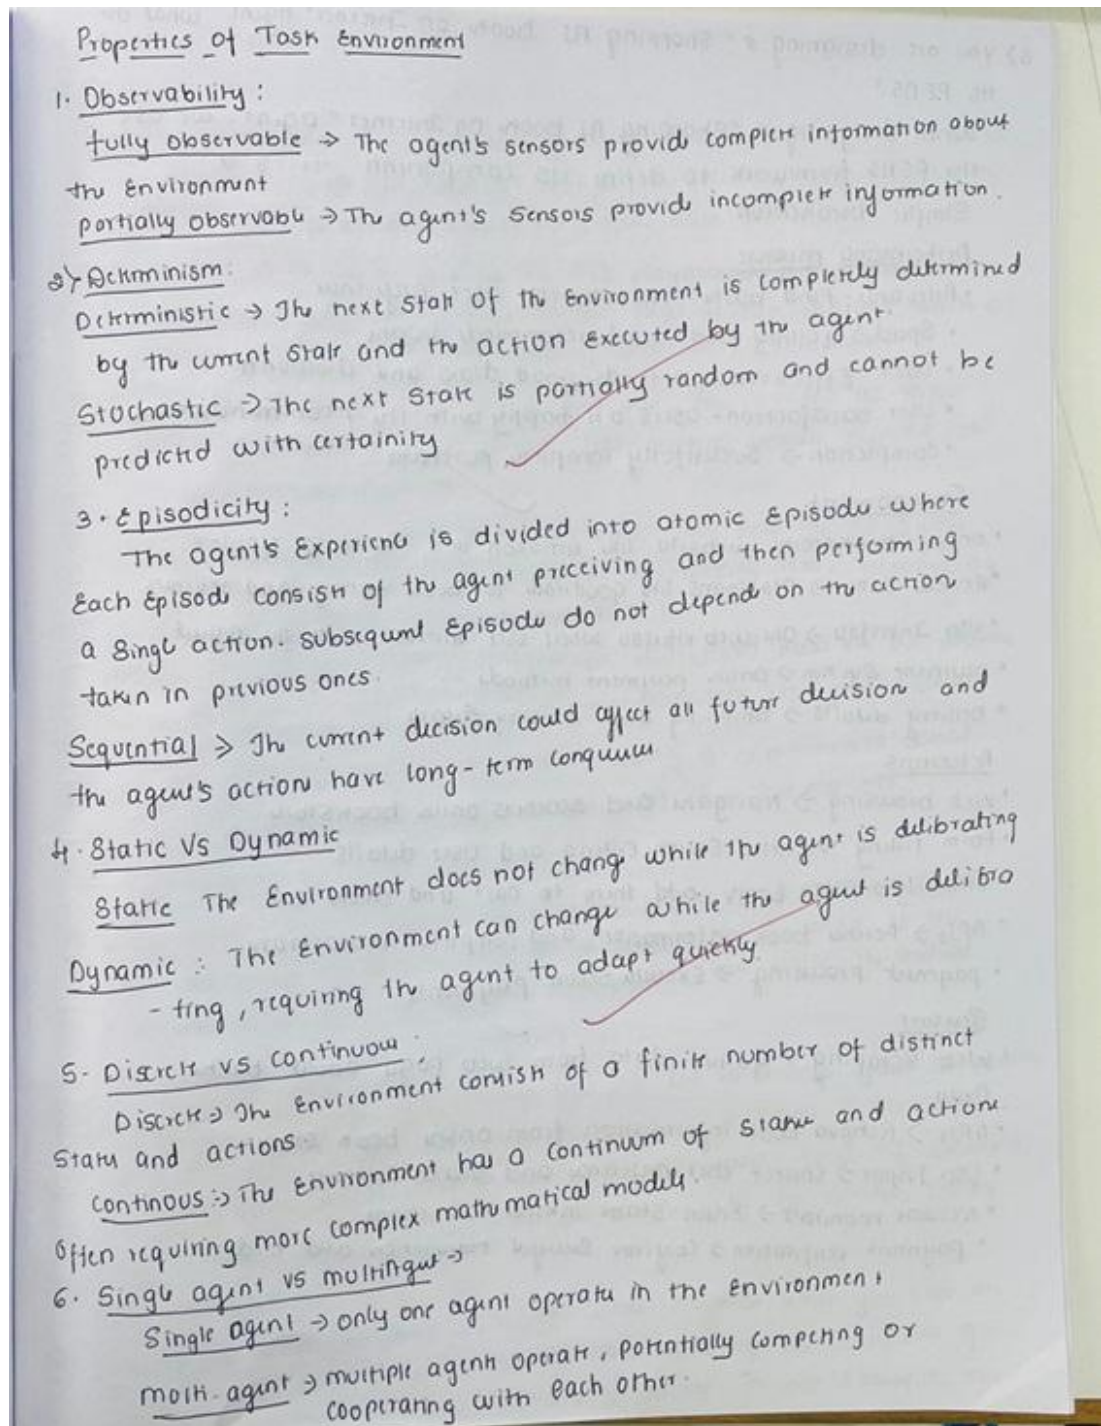 Properties of Task Environment
1. Observability :
fully observable → The agent's sensors provide complete information about
the Environment
partially observable → The agent's Sensors provide incomplete information.
2) Determinism:
Deterministic → The next state of the Environment is completely determined
by the current state and the action Executed by the agent.
Stochastic → The next state is partially random and cannot be
predicted with certainity
3. Episodicity :
The agent's Experience is divided into atomic Episodes where
Each Episode consists of the agent preceiving and then performing
a single action. subsequent Episodes do not depend on the action
taken in previous ones.
Sequential → The current decision could affect all future decisions and
the agent's actions have long-term
4. Static Vs Dynamic
Static The Environment does not change while the agent is delibrating
Dynamic : The Environment can change while the agent is delibra
- ting, requiring the agent to adapt quickly.
5- Discrete vs continuous :
Discrete → The Environment consists of a finite number of distinct
States and actions
Continous :→ The Environment has a continuum of states and actions
Often requiring more complex mathematical models.
6. Single agent vs multiagent →
Single agent → only one agent operates in the Environment
multi-agent → multiple agents operate, potentially competing or
cooperating with each other.